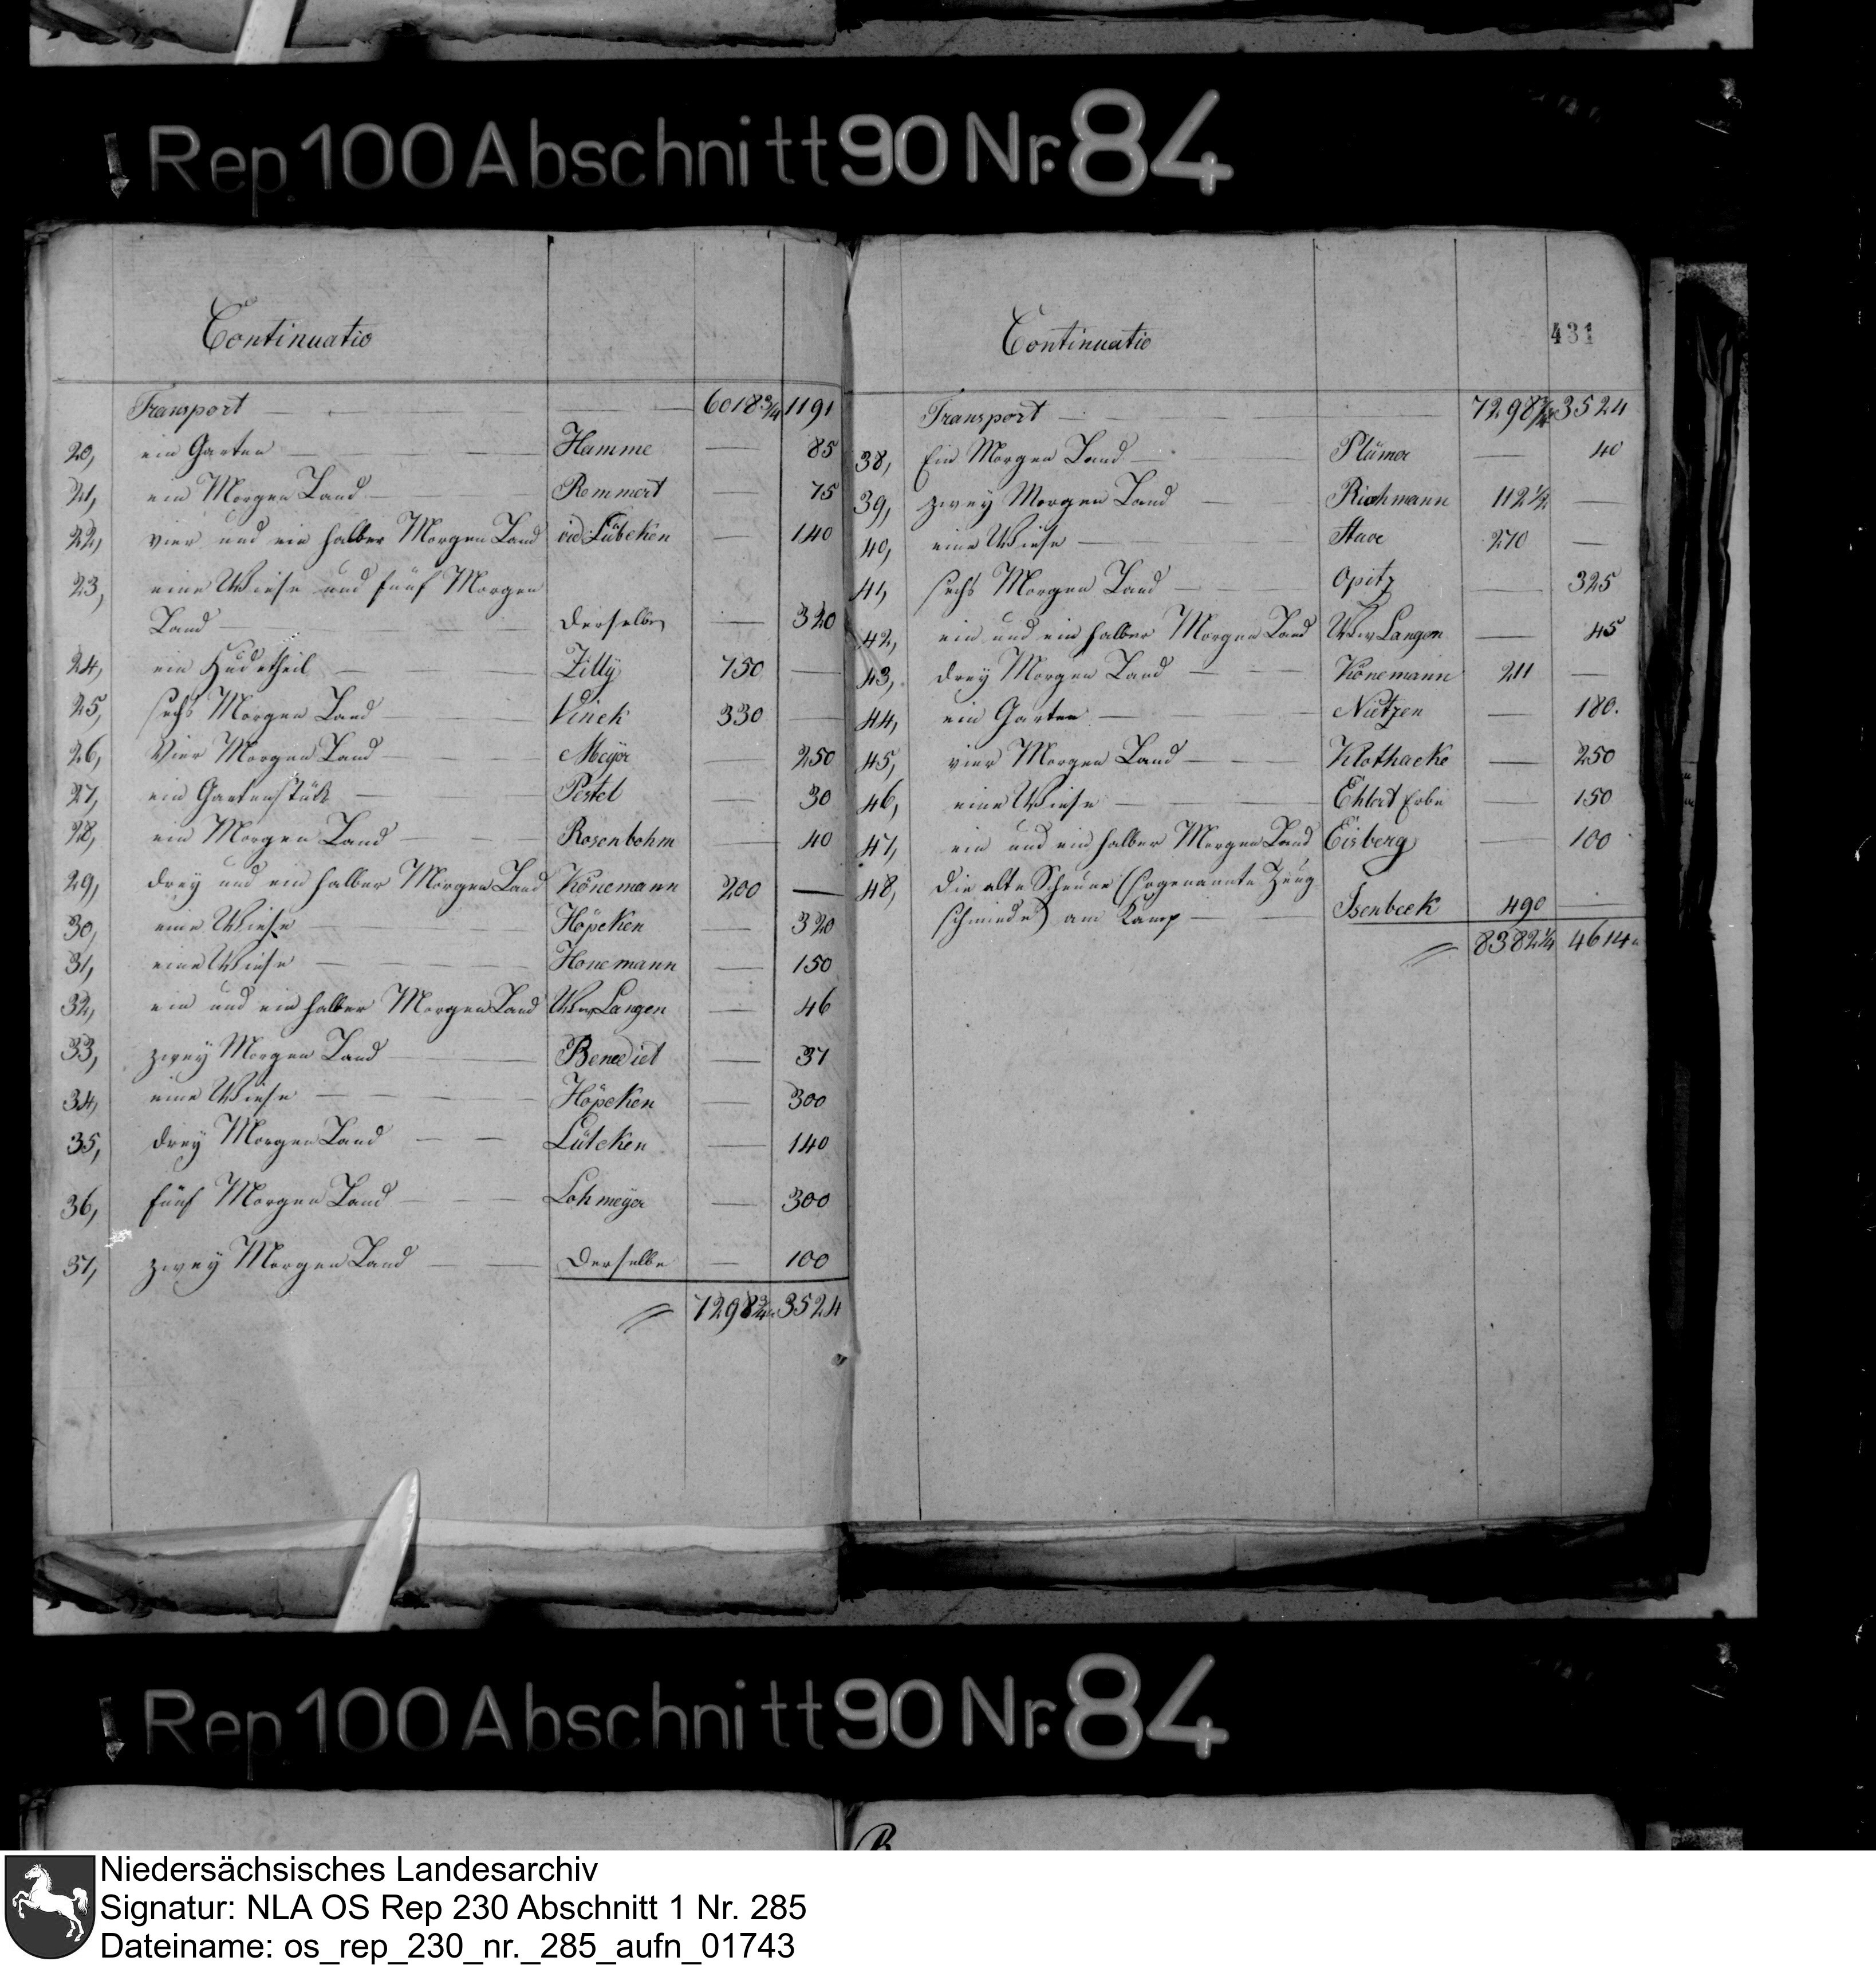 Rep 100 Abschnitt 90 Nr. 84
Continuatio
Transport — — — 6018 3/4 1191
20, ein Garten — — — Hamme — 85
21, ein Morgen Land — — Remmert — 75
22, vier und ein halber Morgen Land vid: Lübcken — 140
23, eine Wiese und fünf Morgen
Land — — derselbe — 320
24, ein Hudetheil — — Zilly 750 —
25, sechs Morgen Land — — Vinck 330 —
26, Vier Morgen Land — — Meyer — 250
27, ein Gartenstük — — Pestel — 30
28, ein Morgen Land — — Rosenbohm — 40
29, drey und ein halber Morgen Land Könemann 200 —
30, eine Wiese — — Höpcken — 320
31, eine Wiese — — Honemann — 150
32, ein und ein halber Morgen Land Langen — 46
33, zwey Morgen Land — — Benedict — 37
34, eine Wiese — — Höpcken — 300
35, drey Morgen Land — — Lütcken — 140
36, fünf Morgen Land — — Lohmeyer — 300
37, zwey Morgen Land — — derselbe — 100
7298 3/4 3524
Continuatio
431
Transport — — 7298 3/4 3524
38, Ein Morgen Land — — Plümer — 40
39, zwey Morgen Land — — Richmann 112 1/2 —
40, eine Wiese — — 270 —
41, sechs Morgen Land — — Opitz — 325
42, ein und ein halber Morgen Land Langen — 45
43, drey Morgen Land — — Könemann 211 —
44, ein Garten — — Nietzen — 180.
45, vier Morgen Land — — Klothacke — 250
46, eine Wiese — — Ehlert Erbe — 150
47, ein und ein halber Morgen Land Eisberg — 100
48, die alte Scheune (sogenannte Zeug
schmiede) am Kamp — — Isenbeck 490 —
8382 1/4 4614
Rep 100 Abschnitt 90 Nr. 84
Niedersächsisches Landesarchiv
Signatur: NLA OS Rep 230 Abschnitt 1 Nr. 285
Dateiname: os_rep_230_nr._285_aufn_01743